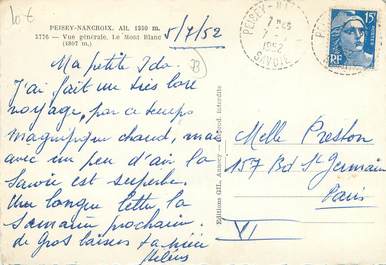 10 €
PEISEY-NANCROIX. Alt. 1350 m.
3776 – Vue générale. Le Mont Blanc
(4807 m.)
5/7/52
73
Ma petite Ida.
J'ai fait un très bon
voyage, par ce temps
magnifique chaud, mais
avec un peu d'air la
Savoie est superbe.
Une longue lettre la
semaine prochain.
de Gros baisers
Hélène
Editions GIL, Annecy interdite
PEISEY-N
7 1952
SAVOIE
15F
RF
POSTES
Melle Preston
157 Bd St Germain
Paris
VI